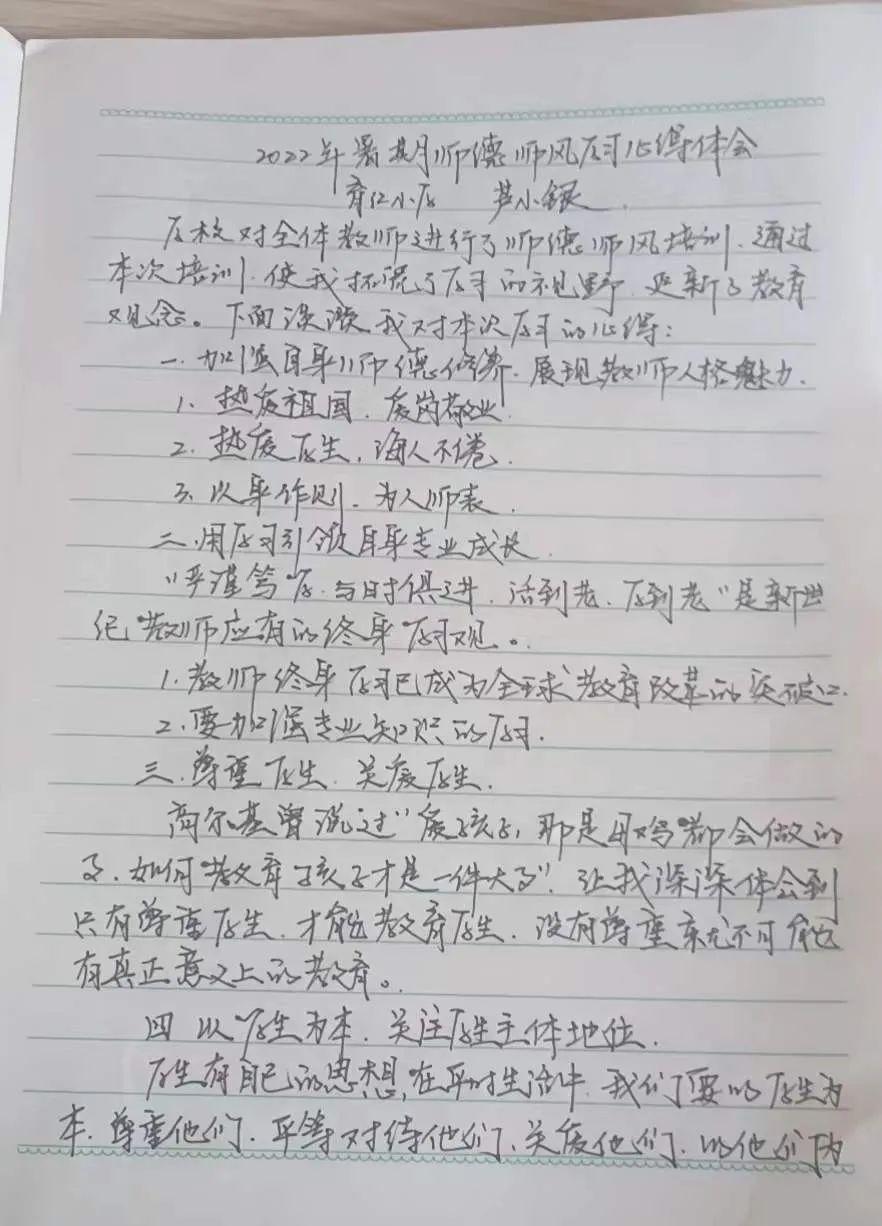 2022年暑期师德师风学习心得体会
育红小学 芦小银
学校对全体教师进行了师德师风培训.通过
本次培训.使我拓宽了学习的视野.更新了教育
观念。下面谈谈我对本次学习的心得:
一.加强自身师德修养.展现教师人格魅力.
1.热爱祖国.爱岗敬业.
2.热爱学生,诲人不倦.
3.以身作则.为人师表.
二.用学习引领自身专业成长.
"严谨笃学.与时俱进.活到老.学到老"是新世
纪教师应有的终身学习观。
1.教师终身学习已成为全球教育改革的突破口.
2.要加强专业知识的学习.
三.尊重学生.关爱学生.
高尔基曾说过"爱孩子,那是母鸡都会做的
事.如何教育孩子才是一件大事".让我深深体会到
只有尊重学生.才能教育学生.没有尊重就不可能
有真正意义上的教育。
四 以学生为本.关注学生主体地位.
学生有自己的思想,在平时生活中.我们要以学生为
本.尊重他们.平等对待他们.关爱他们.以他们为